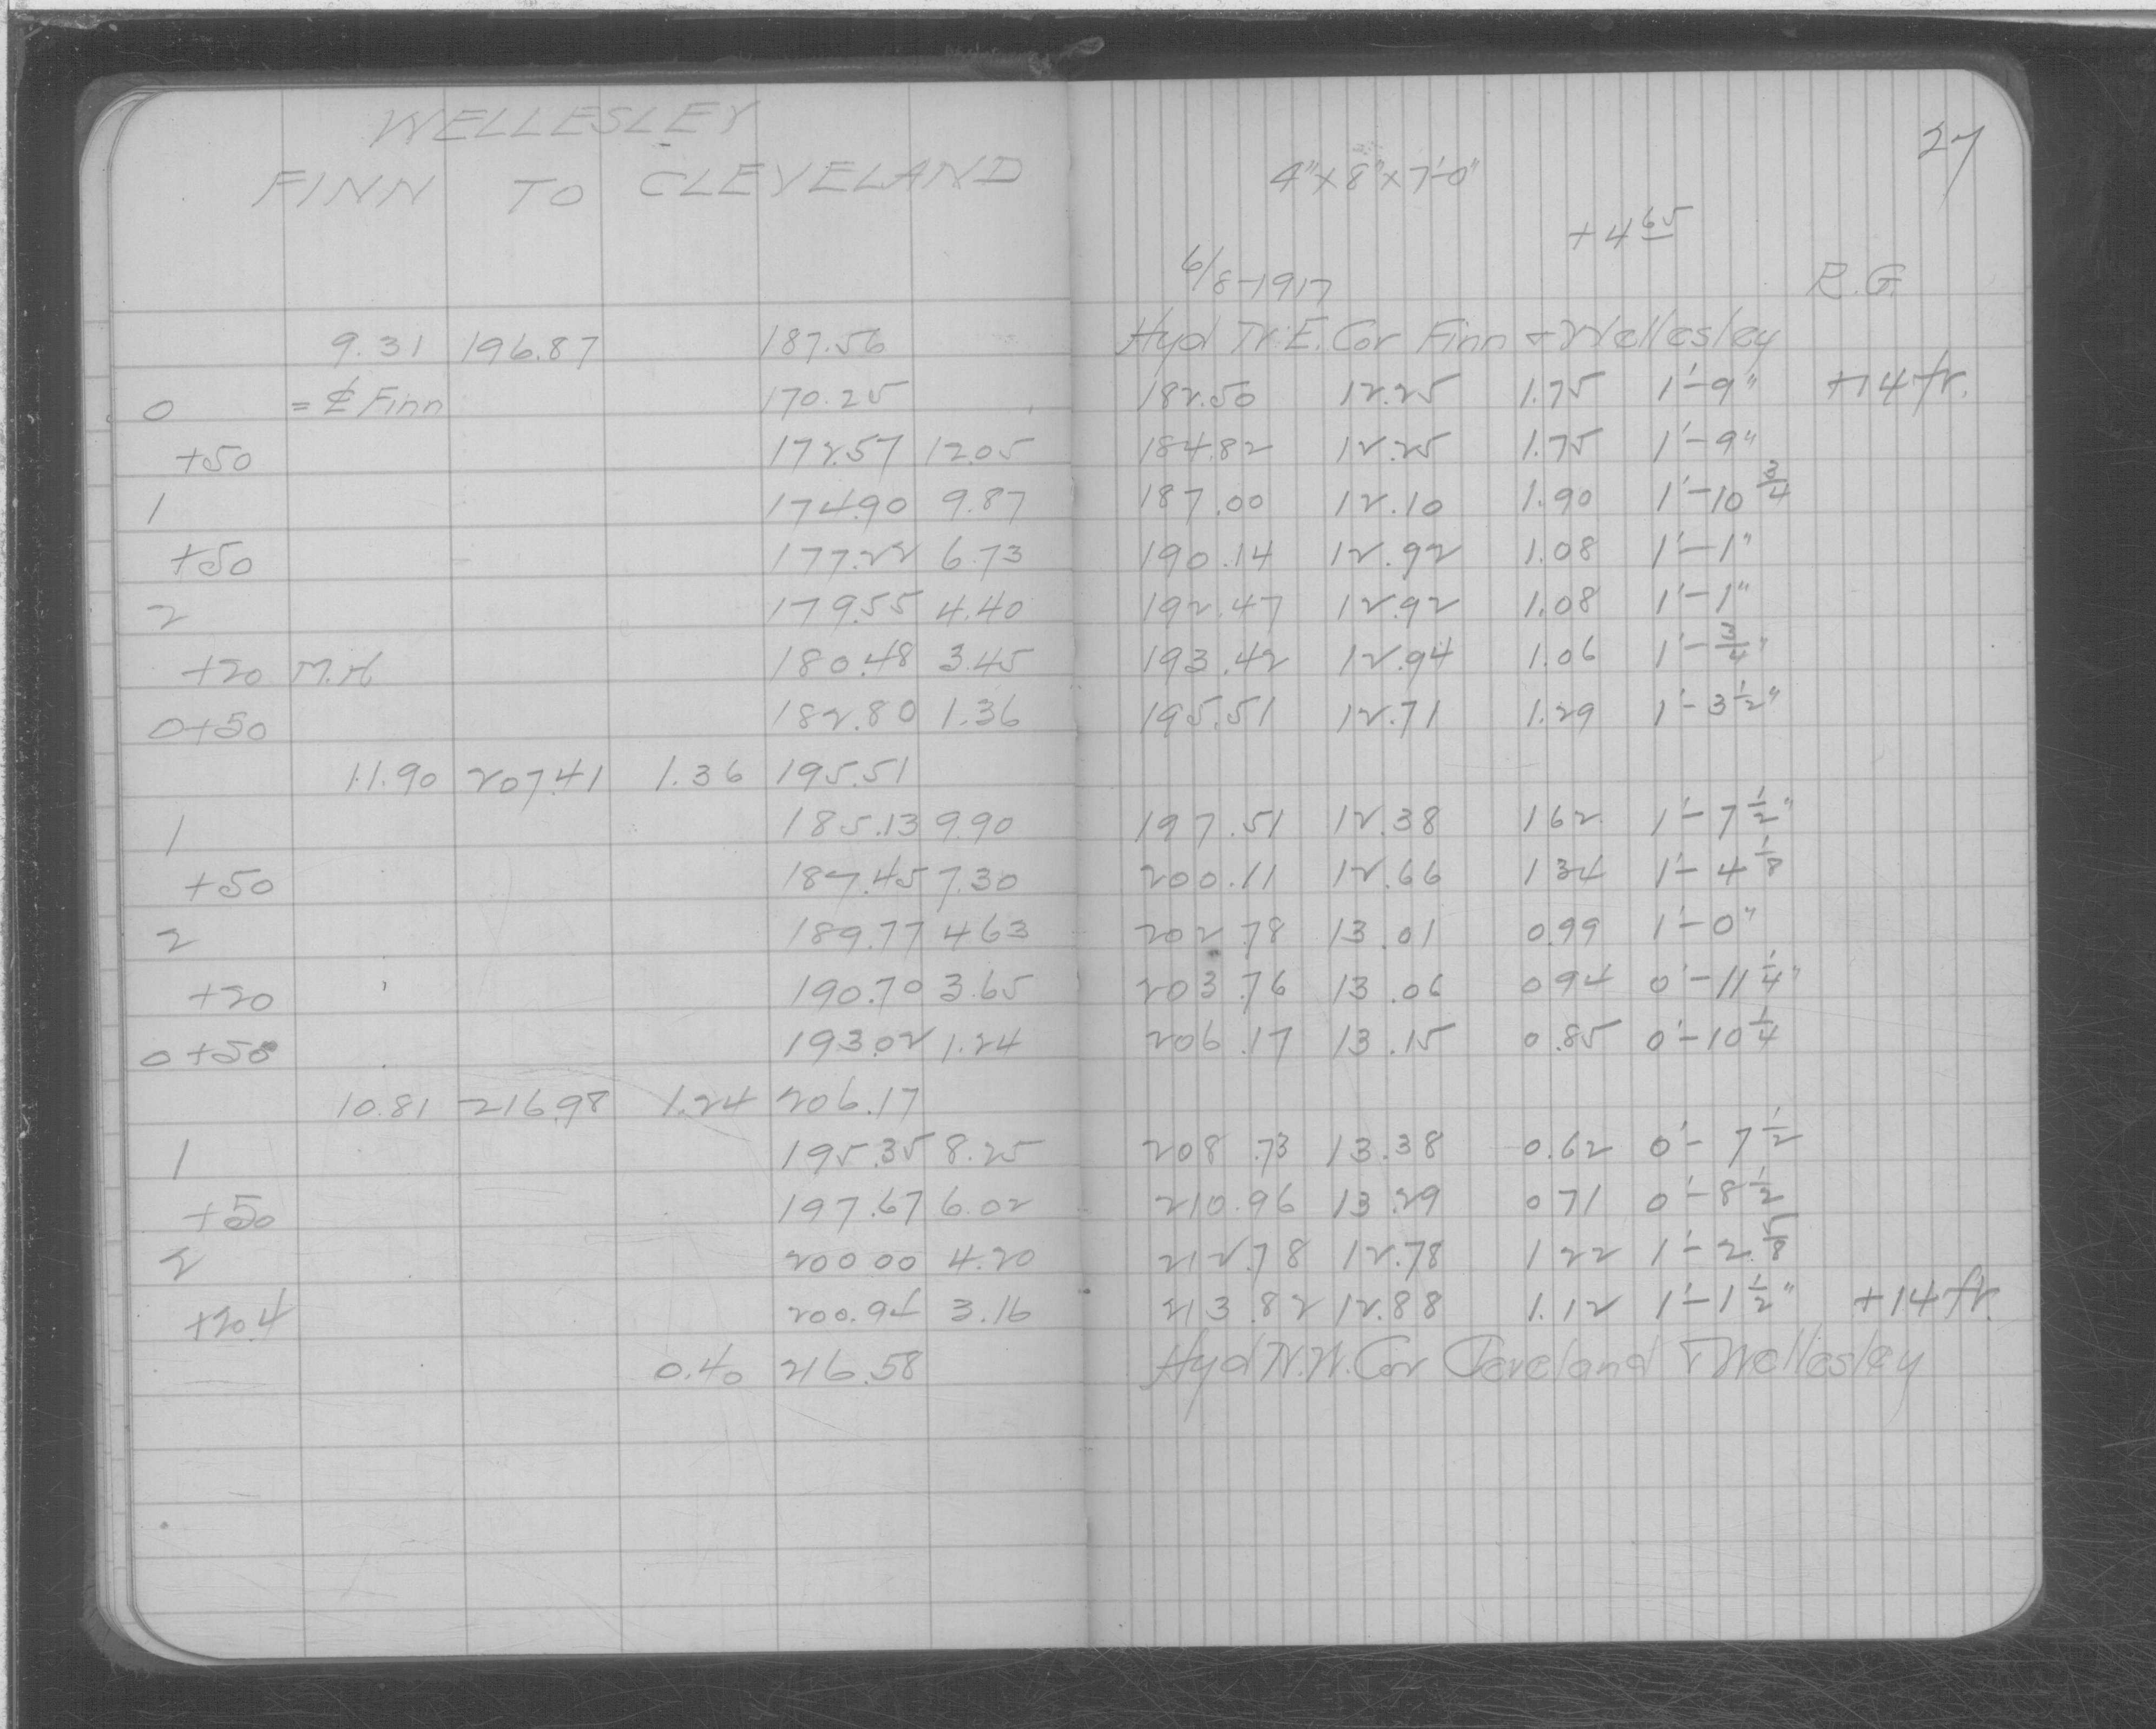 WELLESLEY
FINN TO CLEVELAND
27
4"x8"x7'-0"
+4 65
6/8-1917 R.G.
9.31 196.87 187.56 Hyd N.E. Cor Finn + Wellesley
0 = ₵ Finn 170.25 182.50 12.25 1.75 1'-9" +14 fr.
+50 172.57 12.05 184.82 12.25 1.75 1'-9"
1 174.90 9.87 187.00 12.10 1.90 1'-10 3/4
+50 177.22 6.73 190.14 12.92 1.08 1'-1"
2 179.55 4.40 192.47 12.92 1.08 1'-1"
+20 M.H 180.48 3.45 193.42 12.94 1.06 1'-3/4"
0+50 182.80 1.36 195.51 12.71 1.29 1'-3 1/2"
11.90 207.41 1.36 195.51
1 185.13 9.90 197.51 12.38 1 62 1'-7 1/2"
+50 187.45 7.30 200.11 12.66 1 34 1'-4 1/8
2 189.77 4 63 202 78 13.01 0.99 1'-0"
+20 190.70 3.65 203.76 13.06 0 94 0'-11 1/4"
0+50 193.02 1.24 206.17 13.15 0.85 0'-10 1/4
10.81 216.98 1.24 206.17
1 195.35 8.25 208.73 13.38 0.62 0'-7 1/2
+50 197.67 6.02 210.96 13.29 0 71 0'-8 1/2
2 200 00 4.20 212.78 12.78 1 22 1'-2 5/8
+20.4 200.94 3.16 213.82 12.88 1.12 1'-1 1/2" +14 fr.
0.40 216.58 Hyd N.W. Cor Cleveland + Wellesley